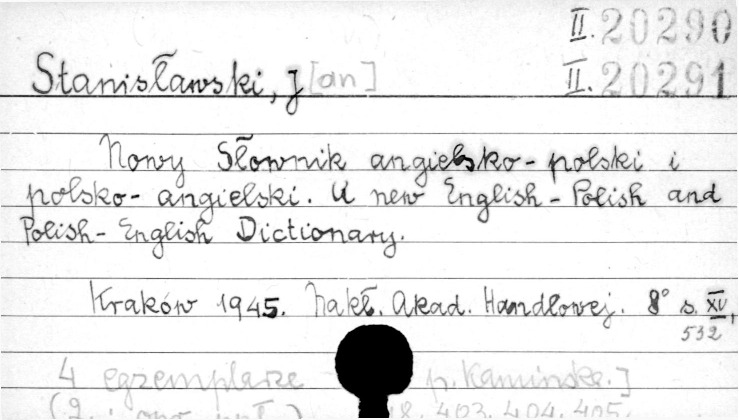 II. 20290
Stanisławski, J[an]
II. 20291
Nowy Słownik angielsko-polski i
polsko-angielski. A new English-Polish and
Polish-English Dictionary.
Kraków 1945. Nakł. Akad. Handlowej. 8° s. XV,
532
4 egzemplarze p. Kamińske.]
403. 404. 405